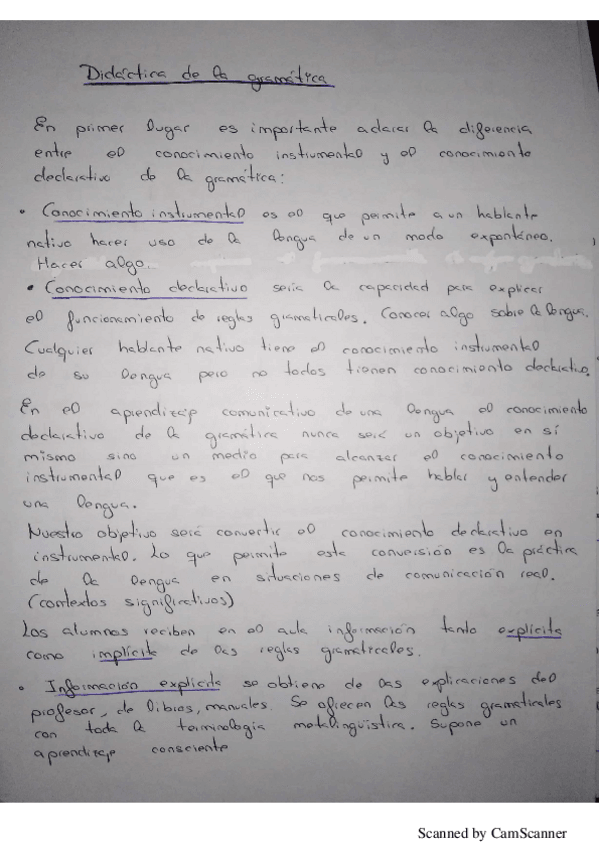 Didáctica de la gramática
En primer lugar es importante aclarar la diferencia
entre el conocimiento instrumental y el conocimiento
declarativo de la gramática:
• Conocimiento instrumental es el que permite a un hablante
nativo hacer uso de la lengua de un modo expontáneo.
Hacer algo.
• Conocimiento declarativo sería la capacidad para explicar
el funcionamiento de reglas gramaticales. Conocer algo sobre la lengua.
Cualquier hablante nativo tiene el conocimiento instrumental
de su lengua pero no todos tienen conocimiento declarativo.
En el aprendizaje comunicativo de una lengua el conocimiento
declarativo de la gramática nunca será un objetivo en sí
mismo sino un medio para alcanzar el conocimiento
instrumental que es el que nos permite hablar y entender
una lengua.
Nuestro objetivo será convertir el conocimiento declarativo en
instrumental. Lo que permite esta conversión es la práctica
de la lengua en situaciones de comunicación real.
(contextos significativos)
Los alumnos reciben en el aula información tanto explícita
como implícita de las reglas gramaticales.
• Información explícita se obtiene de las explicaciones del
profesor, de libros, manuales. Se ofrecen las reglas gramaticales
con toda la terminología metalingüística. Supone un
aprendizaje consciente
Scanned by CamScanner